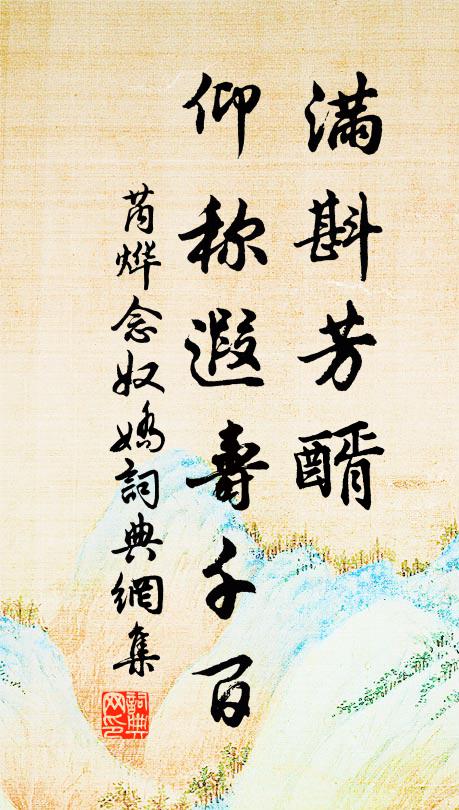 满斟芳醑
仰称遐壽千百
芮烨念奴嬌詞典網集
詞典网印